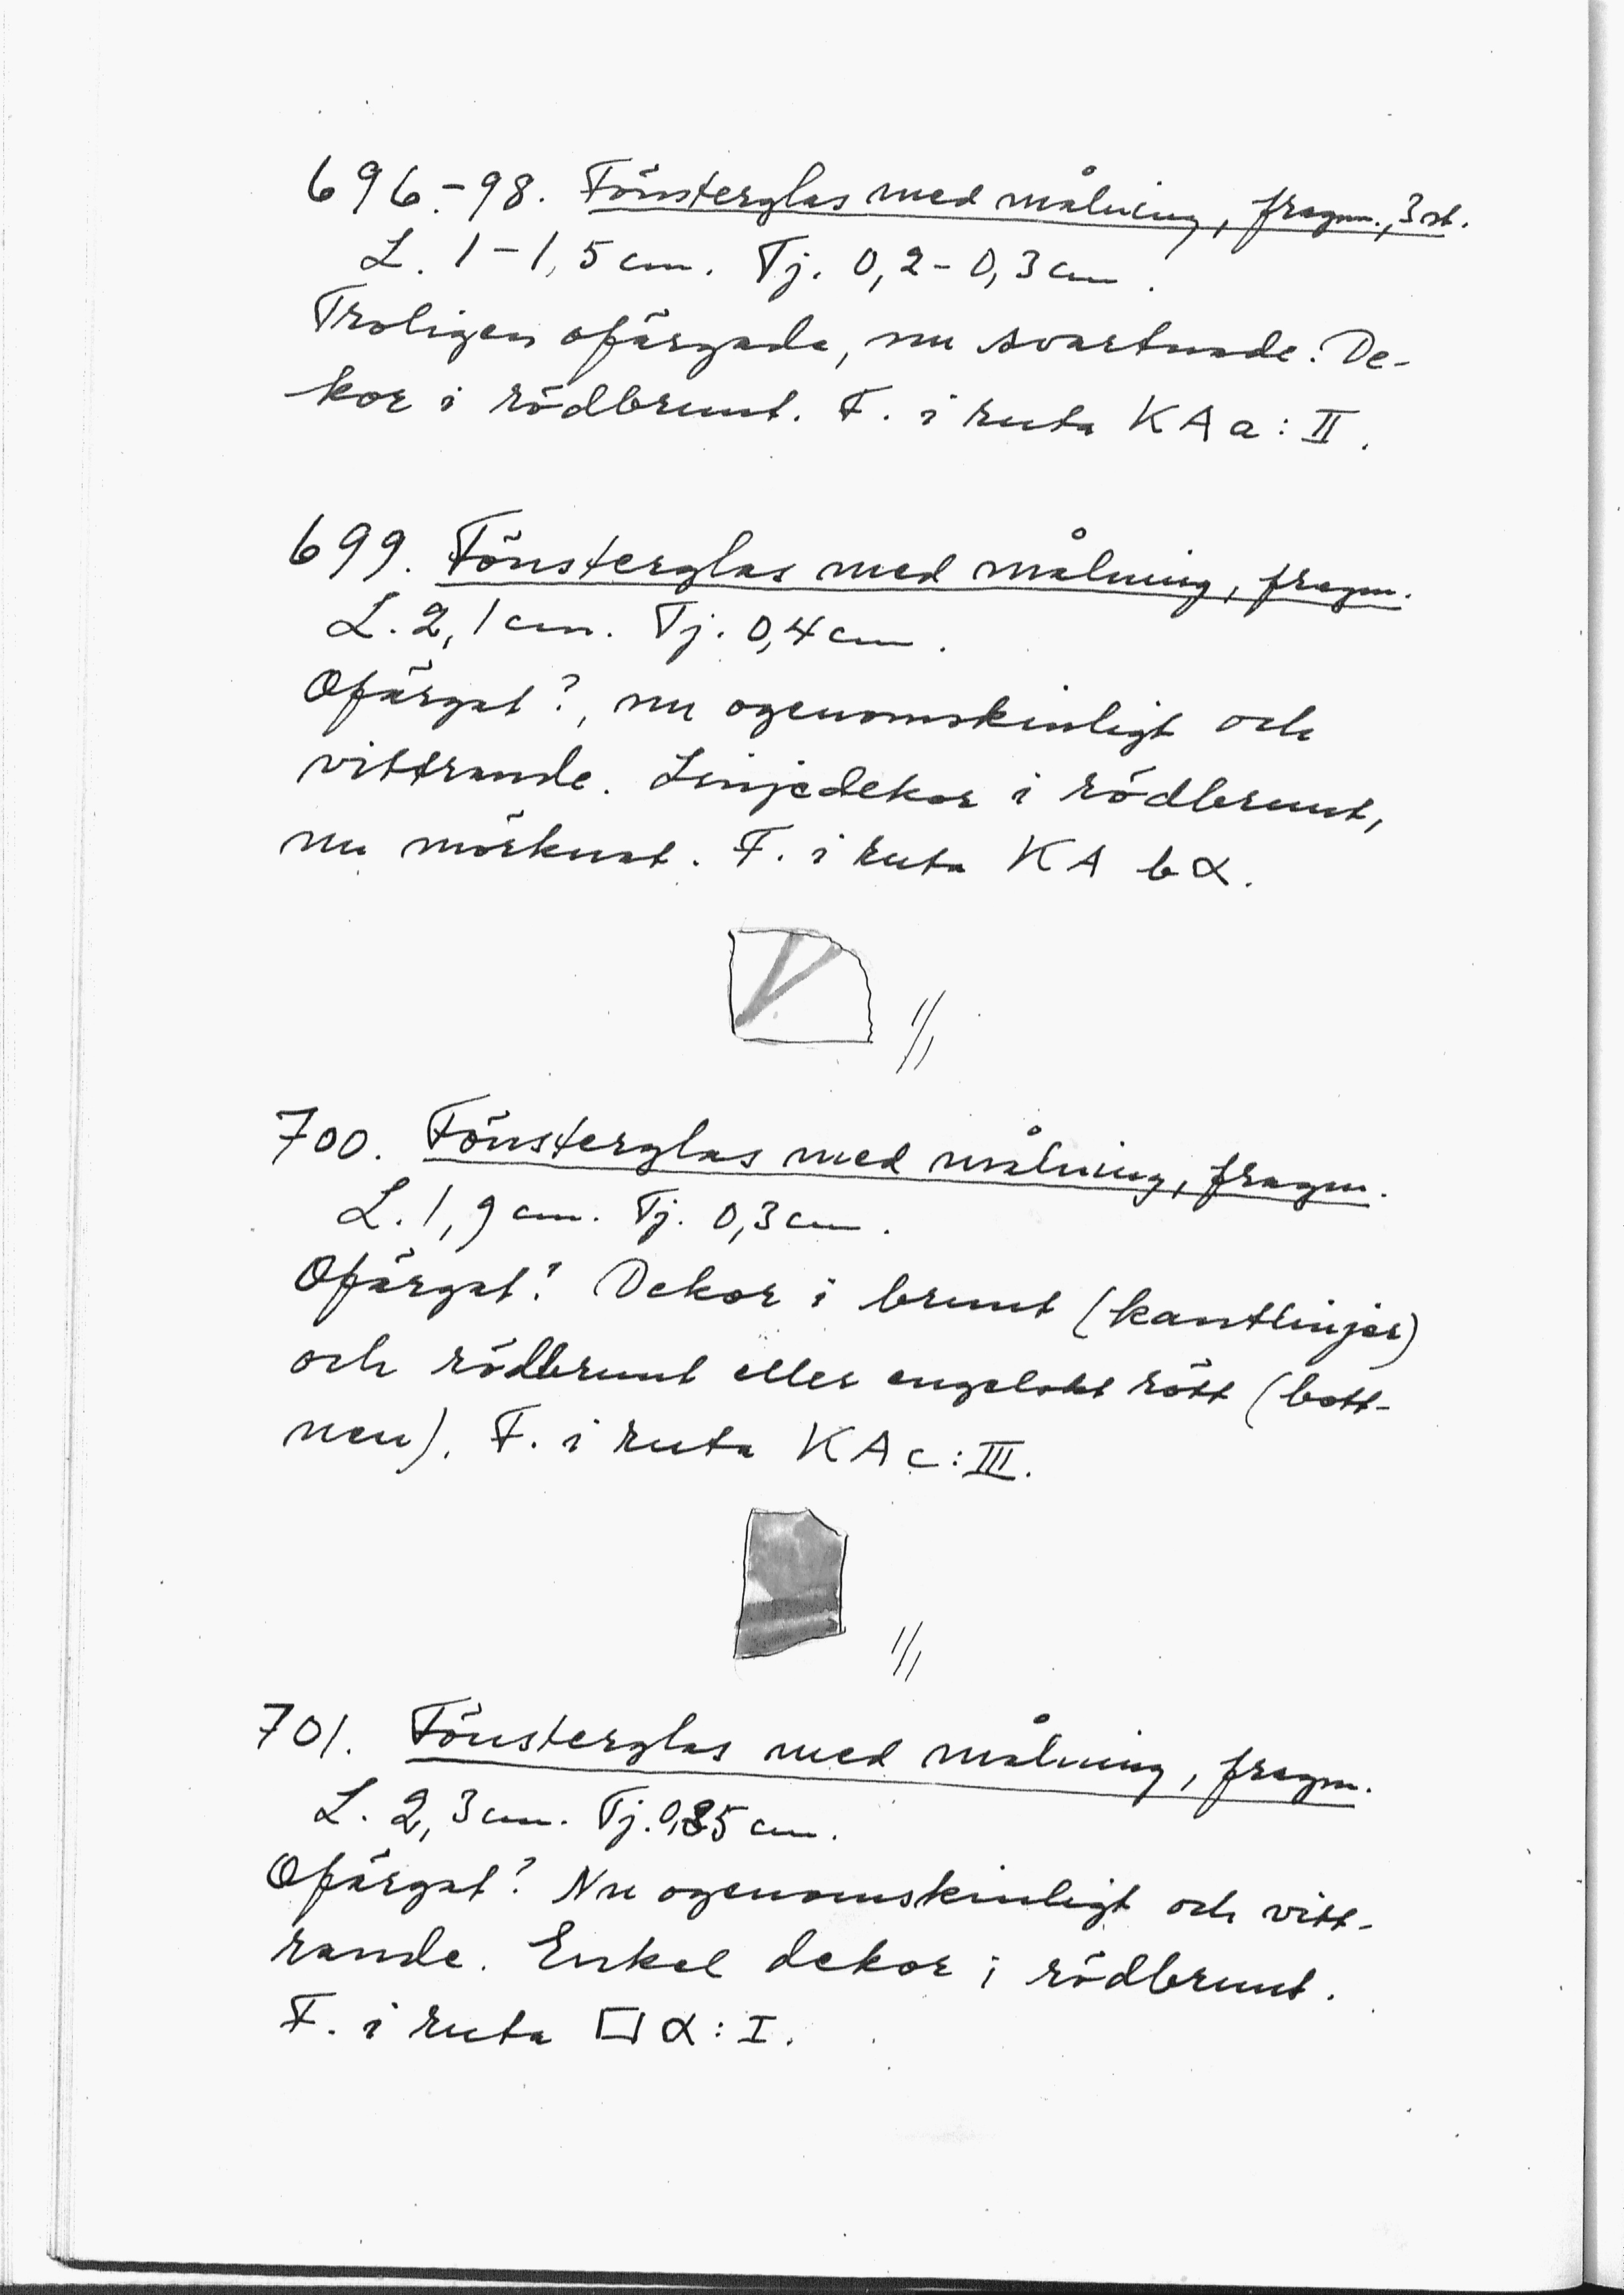 696.-98. Fönsterglas med målning, fragm., 3 st.
L. 1-1,5 cm. Tj. 0,2-0,3 cm.
Troligen ofärgade, nu svartnade. De-
kor i rödbrunt. F. i ruta KA a: II.
699. Fönsterglas med målning, fragm.
L. 2,1 cm. Tj. 0,4 cm.
Ofärgat?, nu ogenomskinligt och
vittrande. Linjedekor i rödbrunt,
nu mörknat. F. i ruta KA b α.
1/1
700. Fönsterglas med målning, fragm.
L. 1,9 cm. Tj. 0,3 cm.
Ofärgat? Dekor i brunt (kantlinjer)
och rödbrunt eller engelskt rött (bott-
nen). F. i ruta KA c: III.
1/1
701. Fönsterglas med målning, fragm.
L. 2,3 cm. Tj. 0,35 cm.
Ofärgat? Nu ogenomskinligt och vitt-
rande. Enkel dekor i rödbrunt.
F. i ruta □ α: I.